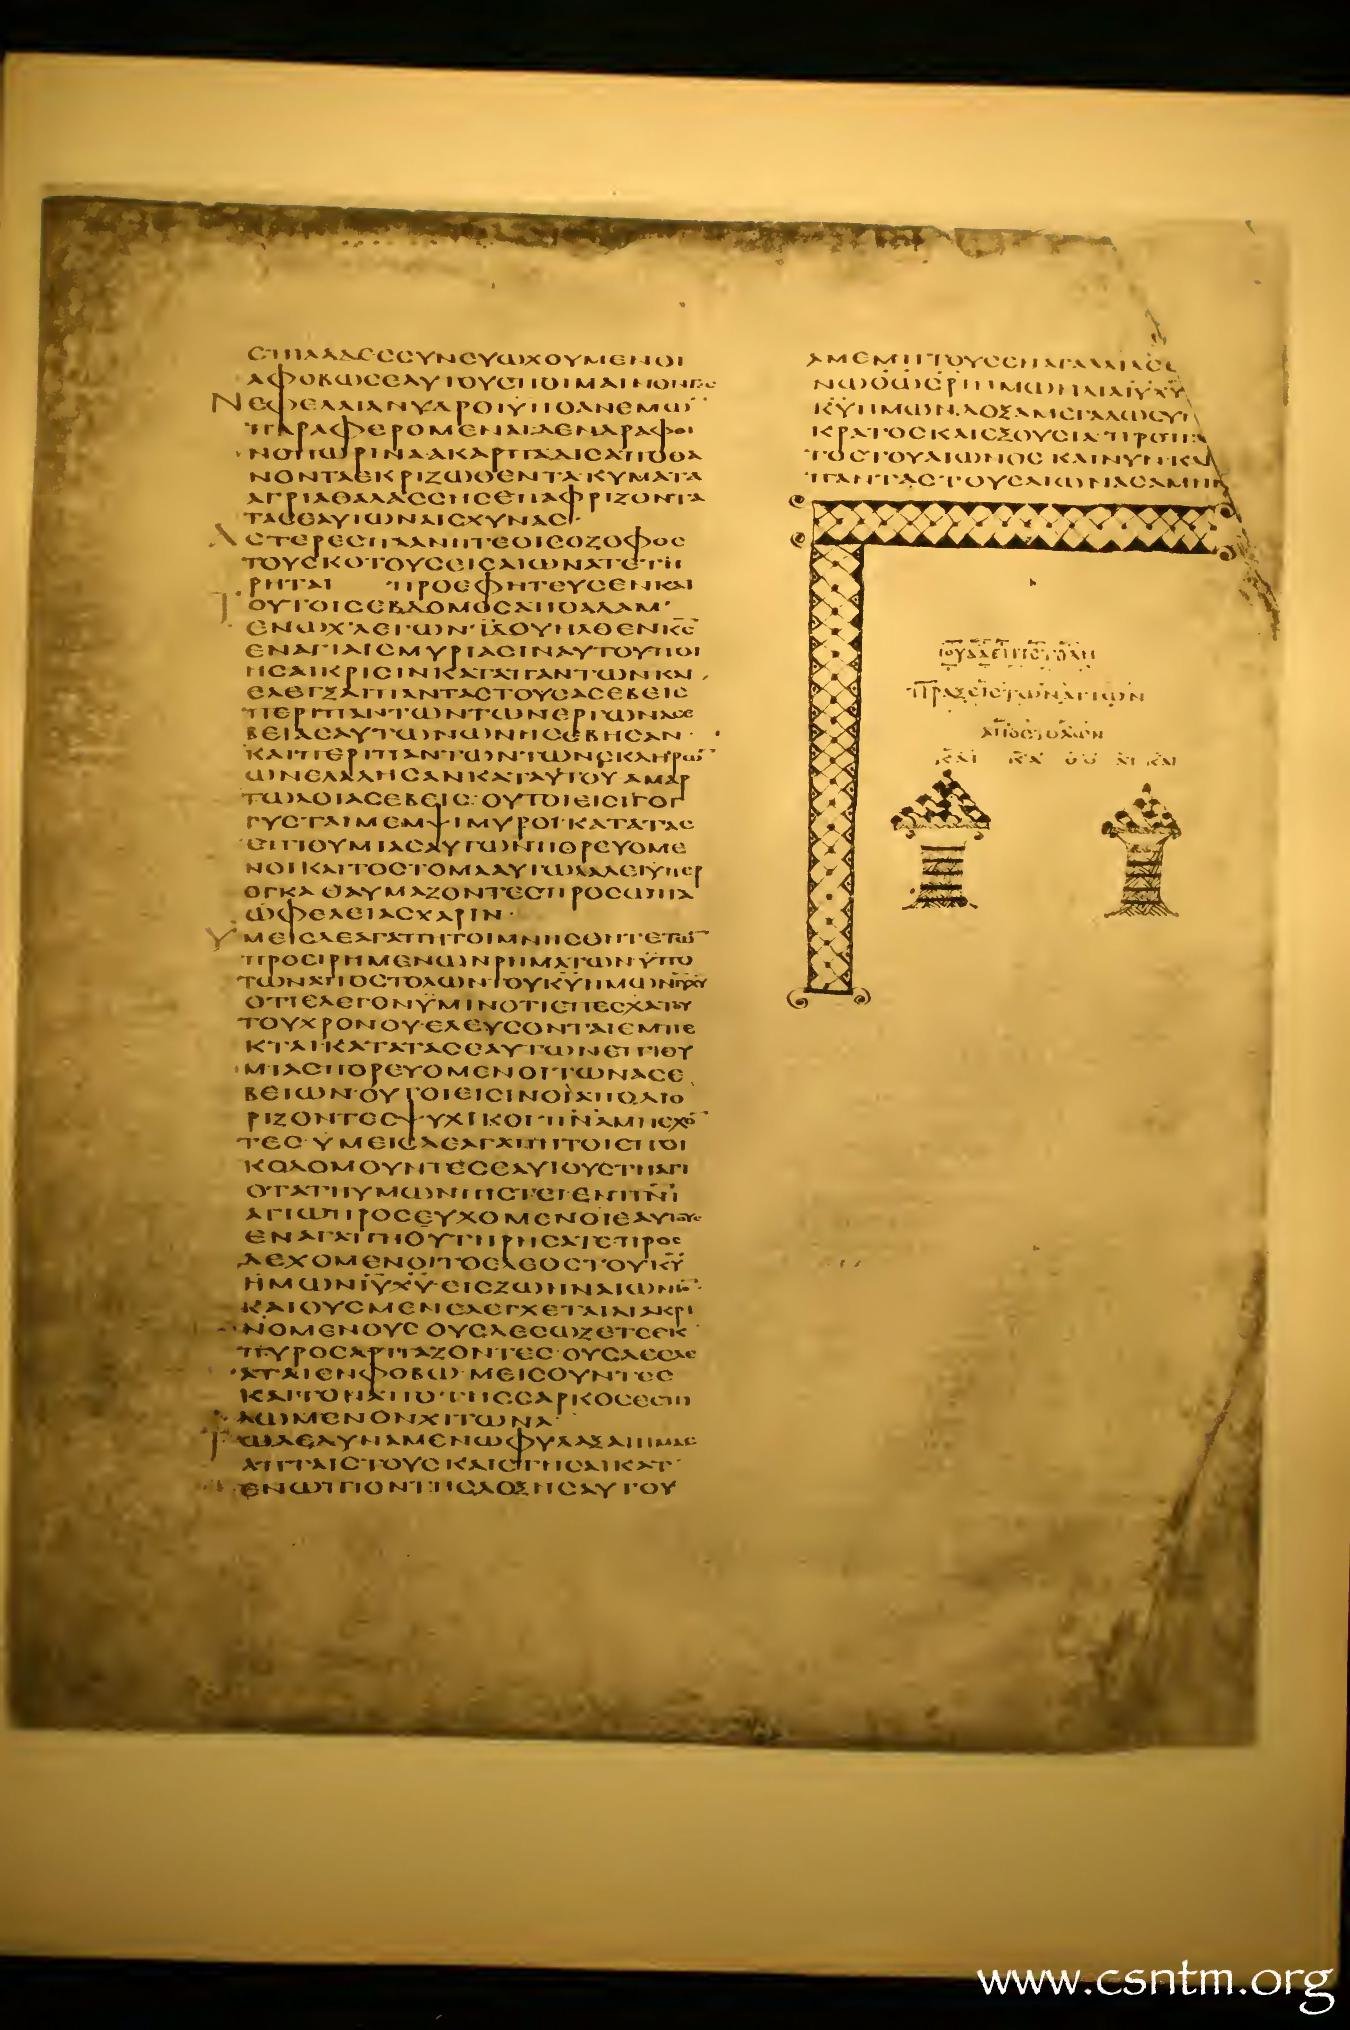 СΠΙΛΑΔЄССΥΝЄΥѠΧΟΥΜЄΝΟΙ
ΑΦΟΒѠСЄΑΥΤΟΥСΠΟΙΜΑΙΝΟΝΤЄС
ΝЄΦЄΛΑΙΑΝΥΔΡΟΙΫΠΟΑΝЄΜѠ¯
ΠΑΡΑΦЄΡΟΜЄΝΑΙ·ΔЄΝΔΡΑΦΘΙ
ΝΟΠѠΡΙΝΑΑΚΑΡΠΑΔΙСΑΠΟΘΑ
ΝΟΝΤΑЄΚΡΙΖѠΘЄΝΤΑ·ΚΥΜΑΤΑ
ΑΓΡΙΑΘΑΛΑССΗСЄΠΑΦΡΙΖΟΝΤΑ
ΤΑСЄΑΥΤѠΝΑΙСΧΥΝΑС·
ΑСΤЄΡЄСΠΛΑΝΗΤЄΟΙСΟΖΟΦΟС
ΤΟΥСΚΟΤΟΥСЄΙСΑΙѠΝΑΤЄΤΗ
ΡΗΤΑΙ ΠΡΟЄΦΗΤЄΥСЄΝΚΑΙ
ΤΟΥΤΟΙСЄΒΔΟΜΟСΑΠΟΑΔΑΜ·
ЄΝѠΧ·ΛЄΓѠΝ·ΪΔΟΥΗΛΘЄΝΚС
ЄΝΑΓΙΑΙСΜΥΡΙΑСΙΝΑΥΤΟΥΠΟΙ
ΗСΑΙΚΡΙСΙΝΚΑΤΑΠΑΝΤѠΝΚΑΙ
ЄΛЄΓΞΑΙΠΑΝΤΑСΤΟΥСΑСЄΒЄΙС
ΠЄΡΙΠΑΝΤѠΝΤѠΝЄΡΓѠΝΑСЄ
ΒЄΙΑСΑΥΤѠΝѠΝΗСЄΒΗСΑΝ·
ΚΑΙΠЄΡΙΠΑΝΤѠΝΤѠΝСΚΛΗΡѠ¯
ѠΝЄΛΑΛΗСΑΝΚΑΤΑΥΤΟΥ·ΑΜΑΡ
ΤѠΛΟΙΑСЄΒЄΙС·ΟΥΤΟΙЄΙСΙΓΟΓ
ΓΥСΤΑΙΜЄΜΨΙΜΥΡΟΙ·ΚΑΤΑΤΑС
ЄΠΙΘΥΜΙΑСΑΥΤѠΝΠΟΡЄΥΟΜЄ
ΝΟΙΚΑΙΤΟСΤΟΜΑΑΥΤѠΝΛΑΛЄΙΫΠЄΡ
ΟΓΚΑΘΑΥΜΑΖΟΝΤЄСΠΡΟСѠΠΑ
ѠΦЄΛЄΙΑСΧΑΡΙΝ·
ΥΜЄΙСΔЄΑΓΑΠΗΤΟΙΜΝΗСΘΗΤЄΤѠ¯
ΠΡΟЄΙΡΗΜЄΝѠΝΡΗΜΑΤѠΝΫΠΟ
ΤѠΝΑΠΟСΤΟΛѠΝΤΟΥΚΥΗΜѠΝΙΥΧΥ
ΟΤΙЄΛЄΓΟΝΫΜΙΝΟΤΙЄΠЄСΧΑΤΟΥ
ΤΟΥΧΡΟΝΟΥ·ЄΛЄΥСΟΝΤΑΙЄΜΠЄ
ΚΤΑΙ·ΚΑΤΑΤΑСЄΑΥΤѠΝЄΠΙΘΥ
ΜΙΑСΠΟΡЄΥΟΜЄΝΟΙΤѠΝΑСЄ
ΒЄΙѠΝ·ΟΥΤΟΙЄΙСΙΝΟΙΑΠΟΔΙΟ
ΡΙΖΟΝΤЄСΨΥΧΙΚΟΙ·ΠΝΑΜΗЄΧΟ¯
ΤЄС·ΫΜЄΙСΔЄΑΓΑΠΗΤΟΙЄΠΟΙ
ΚΟΔΟΜΟΥΝΤЄСЄΑΥΤΟΥСΤΗΑΓΙ
ѠΤΑΤΗΥΜѠΝΠΙСΤЄΙ·ЄΝΠΝΙ
ΑΓΙѠΠΡΟСЄΥΧΟΜЄΝΟΙЄΑΥΤΟΥС
ЄΝΑΓΑΠΗΘΥΤΗΡΗСΑΤЄΠΡΟС
ΔЄΧΟΜЄΝΟΙΤΟЄΛЄΟСΤΟΥΚΥ
ΗΜѠΝΙΥΧΥ·ЄΙСΖѠΗΝΑΙѠΝΙΟ¯·
ΚΑΙΟΥСΜЄΝЄΛЄΓΧЄΤΑΙΔΙΑΚΡΙ
ΝΟΜЄΝΟΥС ΟΥСΔЄСѠΖЄΤЄЄΚ
ΠΥΡΟСΑΡΠΑΖΟΝΤЄС·ΟΥСΔЄЄΛЄ
ΑΤΑΙЄΝΦΟΒѠ·ΜЄΙСΟΥΝΤЄС
ΚΑΙΤΟΝΑΠΟΤΗССΑΡΚΟСЄСΠΙ
ΛѠΜЄΝΟΝΧΙΤѠΝΑ·
ΤѠΔЄΔΥΝΑΜЄΝѠΦΥΛΑΞΑΙΗΜΑС
ΑΠΤΑΙСΤΟΥС·ΚΑΙСΤΗСΑΙΚΑΤ
ЄΝѠΠΙΟΝΤΗСΔΟΞΗСΑΥΤΟΥ
ΑΜЄΜΠΤΟΥСЄΝΑΓΑΛΛΙΑСЄΙ
ΝѠΘѠСΡΙΗΜѠΝΔΙΑΙΥΧΥ
ΚΥΗΜѠΝ·ΔΟΞΑΜЄΓΑΛѠСΥΝ
ΚΡΑΤΟСΚΑΙЄΞΟΥСΙΑ·ΠΡΟΠΑ
ΤΟСΤΟΥΑΙѠΝΟС·ΚΑΙΝΥΝ·ΚΑΙ
ΠΑΝΤΑСΤΟΥСΑΙѠΝΑСΑΜΗΝ
ΙΟΥΔΑЄΠΙСΤΟΛΗ
ΠΡΑΞЄΙСΤѠΝΑΓΙѠΝ
ΑΠΟСΤΟΛѠΝ
ΚΑΙ ΚΑΘΟ ΛΙΚΑΙ
www.csntm.org